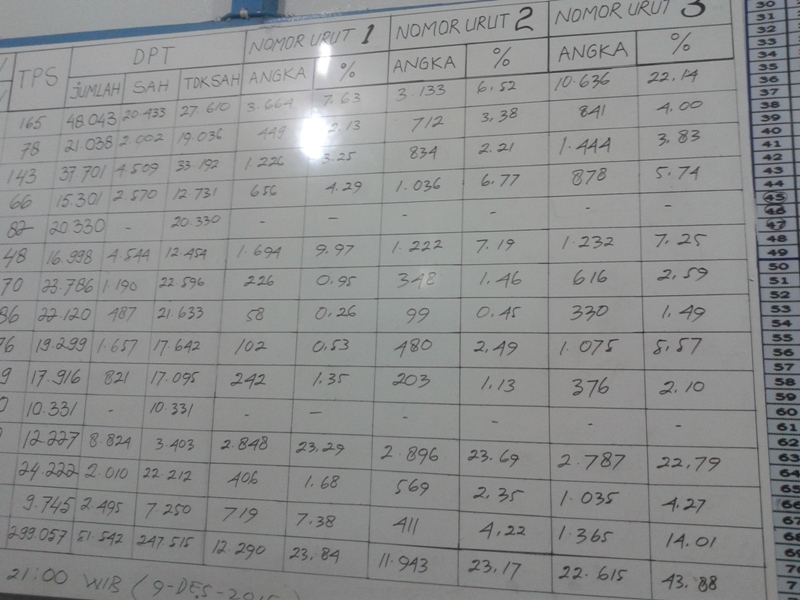 DPT NOMOR URUT 1 NOMOR URUT 2 NOMOR URUT 3
TPS JUMLAH SAH TDK SAH ANGKA % ANGKA % ANGKA %
165 48.043 20.433 27.610 3.664 7.63 3.133 6,52 10.636 22,14
78 21.038 2.002 19.036 449 2.13 712 3,38 841 4.00
143 37.701 4.509 33.192 1.226 3.25 834 2.21 1.444 3,83
66 15.301 2.570 12.731 656 4.29 1.036 6.77 878 5.74
82 20.330 - 20.330 - - - - - -
48 16.998 4.544 12.454 1.694 9.97 1.222 7.19 1.232 7.25
70 23.786 1.190 22.596 226 0.95 348 1.46 616 2,59
86 22.120 487 21.633 58 0,26 99 0.45 330 1,49
76 19.299 1.657 17.642 102 0,53 480 2,49 1.075 5,57
9 17.916 821 17.095 242 1.35 203 1,13 376 2.10
0 10.331 - 10.331 - - - - - -
12.227 8.824 3.403 2.848 23,29 2.896 23.69 2.787 22,79
24.222 2.010 22.212 406 1.68 569 2,35 1.035 4,27
9.745 2.495 7.250 719 7.38 411 4,22 1.365 14.01
299.057 51.542 247.515 12.290 23.84 11.943 23.17 22.615 43.88
21:00 WIB (9-DES-2015)
30
31
32
33
34
35
36
37
38
39
40
41
42
43
44
45
46
47
48
49
50
51
52
53
54
55
56
57
58
59
60
61
62
63
64
65
66
67
68
69
70